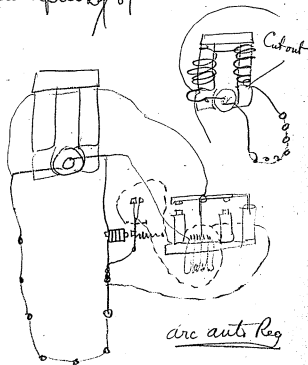 Cut out
arc auto Reg